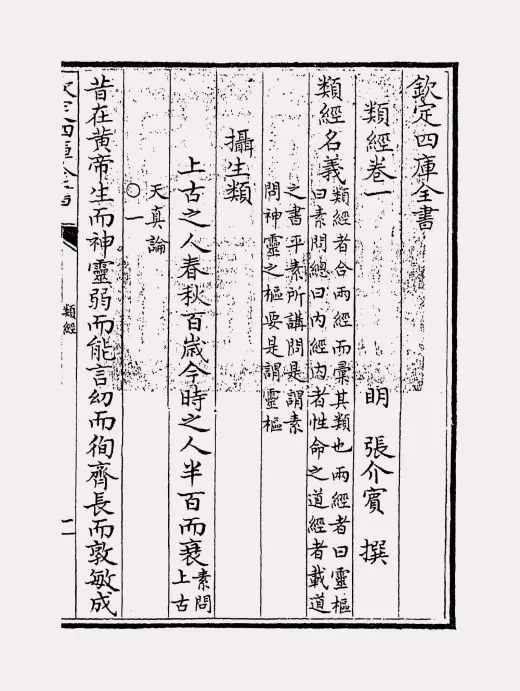 欽定四庫全書
類經卷一
明 張介賓 撰
類經名義
類經者合兩經而彙其類也兩經者曰靈樞
曰素問總曰內經內者性命之道經者載道
之書平素所講問是謂素
問神靈之樞要是謂靈樞
攝生類
上古之人春秋百歲今時之人半百而衰
素問
上古
天真論
○一
昔在黃帝生而神靈弱而能言幼而徇齊長而敦敏成
類經